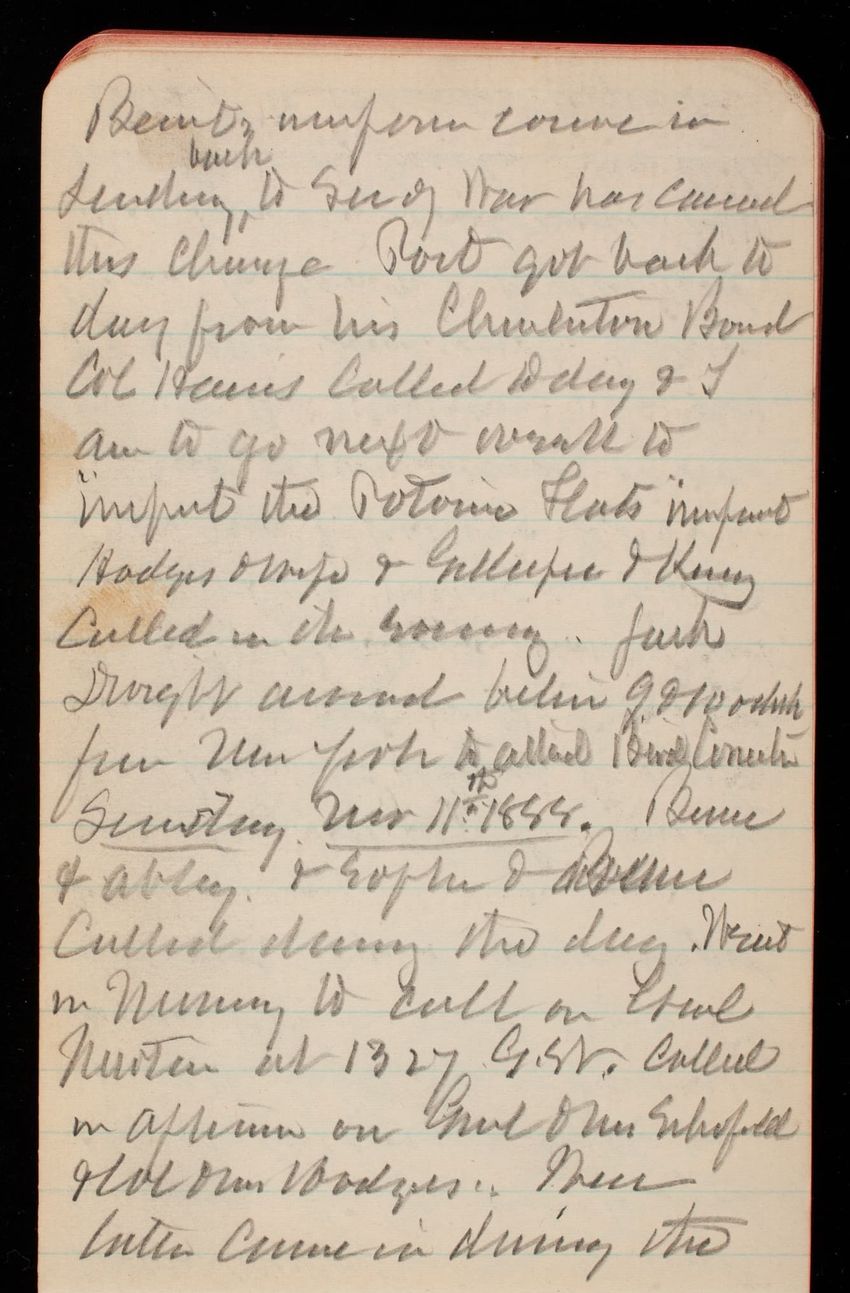 Benét's uniform course in
sending back to Sec of War has caused
this change Post got back to
day from his Charleston Board
Col Harris Called to day & I
am to go next week to
"inspect the Potomac Flats"
Hodges & wife & Gillespie & King
Called in the evening. Jack
Dwight arrived before 9 & 10 oclock
from New York & called
Sunday Nov 11th 1888. Bessie
& Abbey. & Sophie &
Called during the day. Went
in Morning to call on Genl
Newton at 1327 G. St. Called
in afternoon on Genl & Mrs Schofield
& Col & Mrs Hodges..
later Came in during the